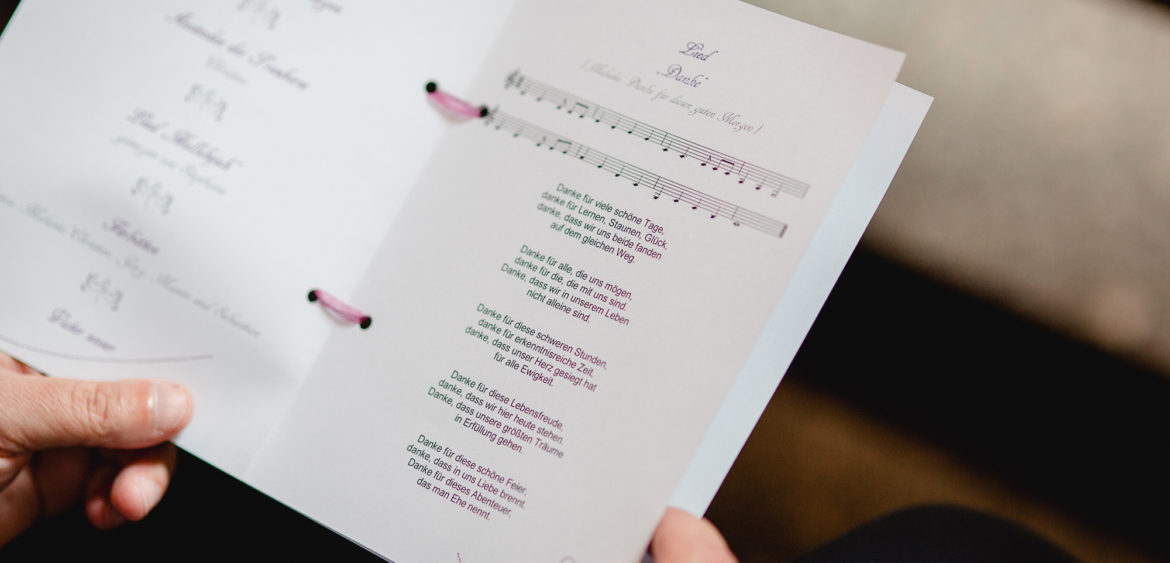 Lied „Halleluja"
Fürbitten
Vater unser
Lied
„Danke"
(Melodie: Danke für diesen guten Morgen)
Danke für viele schöne Tage,
danke für Lernen, Staunen, Glück,
danke, dass wir uns beide fanden
auf dem gleichen Weg.
Danke für alle, die uns mögen,
danke für die, die mit uns sind.
Danke, dass wir in unserem Leben
nicht alleine sind.
Danke für diese schweren Stunden,
danke für erkenntnisreiche Zeit,
danke, dass unser Herz gesiegt hat
für alle Ewigkeit.
Danke für diese Lebensfreude,
danke, dass wir hier heute stehen.
Danke, dass unsere größten Träume
in Erfüllung gehen.
Danke für diese schöne Feier,
danke, dass in uns Liebe brennt.
Danke für dieses Abenteuer,
das man Ehe nennt.